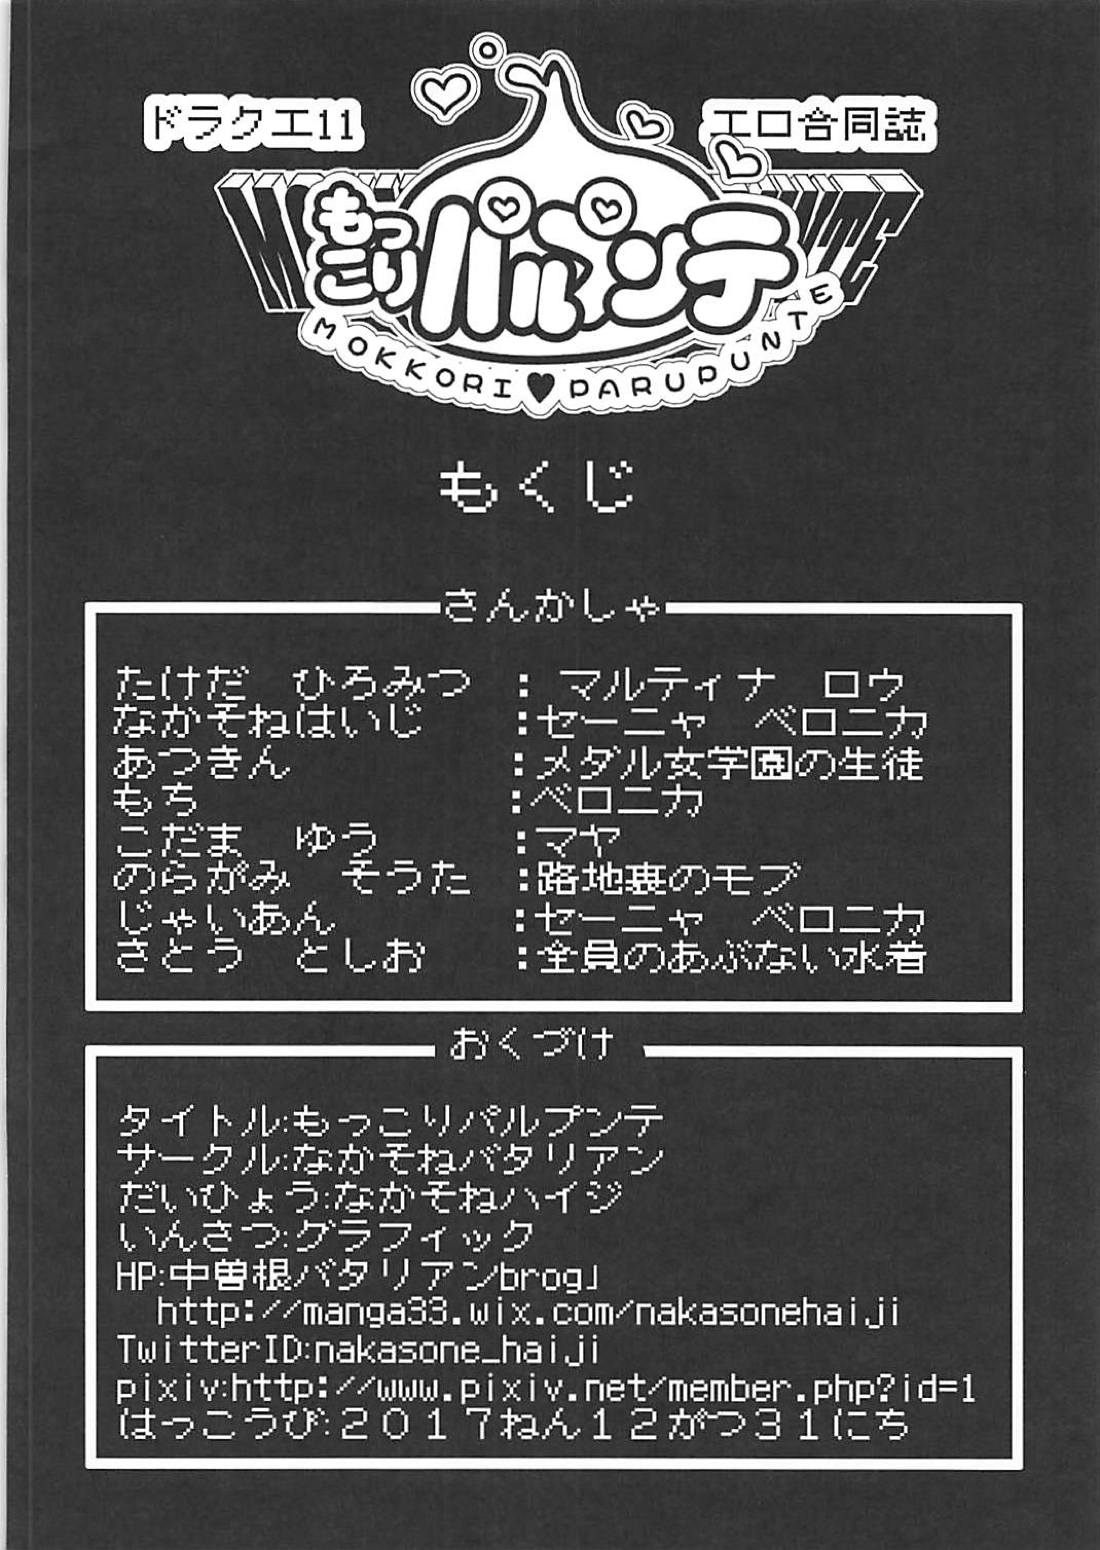 ドラクエ11
エロ合同誌
もっこりパルプンテ
MOKKORI♥PARUPUNTE
もくじ
さんかしゃ
たけだ　ひろみつ　：　マルティナ　ロウ
なかそねはいじ　：セーニャ　ベロニカ
あつきん　：メダル女学園の生徒
もち　：ベロニカ
こだま　ゆう　：マヤ
のらがみ　そうた　：路地裏のモブ
じゃいあん　：セーニャ　ベロニカ
さとう　としお　：全員のあぶない水着
おくづけ
タイトル:もっこりパルプンテ
サークル:なかそねバタリアン
だいひょう:なかそねハイジ
いんさつ:グラフィック
HP:中曽根バタリアンbrog」
http://manga33.wix.com/nakasonehaiji
TwitterID:nakasone_haiji
pixiv:http://www.pixiv.net/member.php?id=1
はっこうび:２０１７ねん１２がつ３１にち